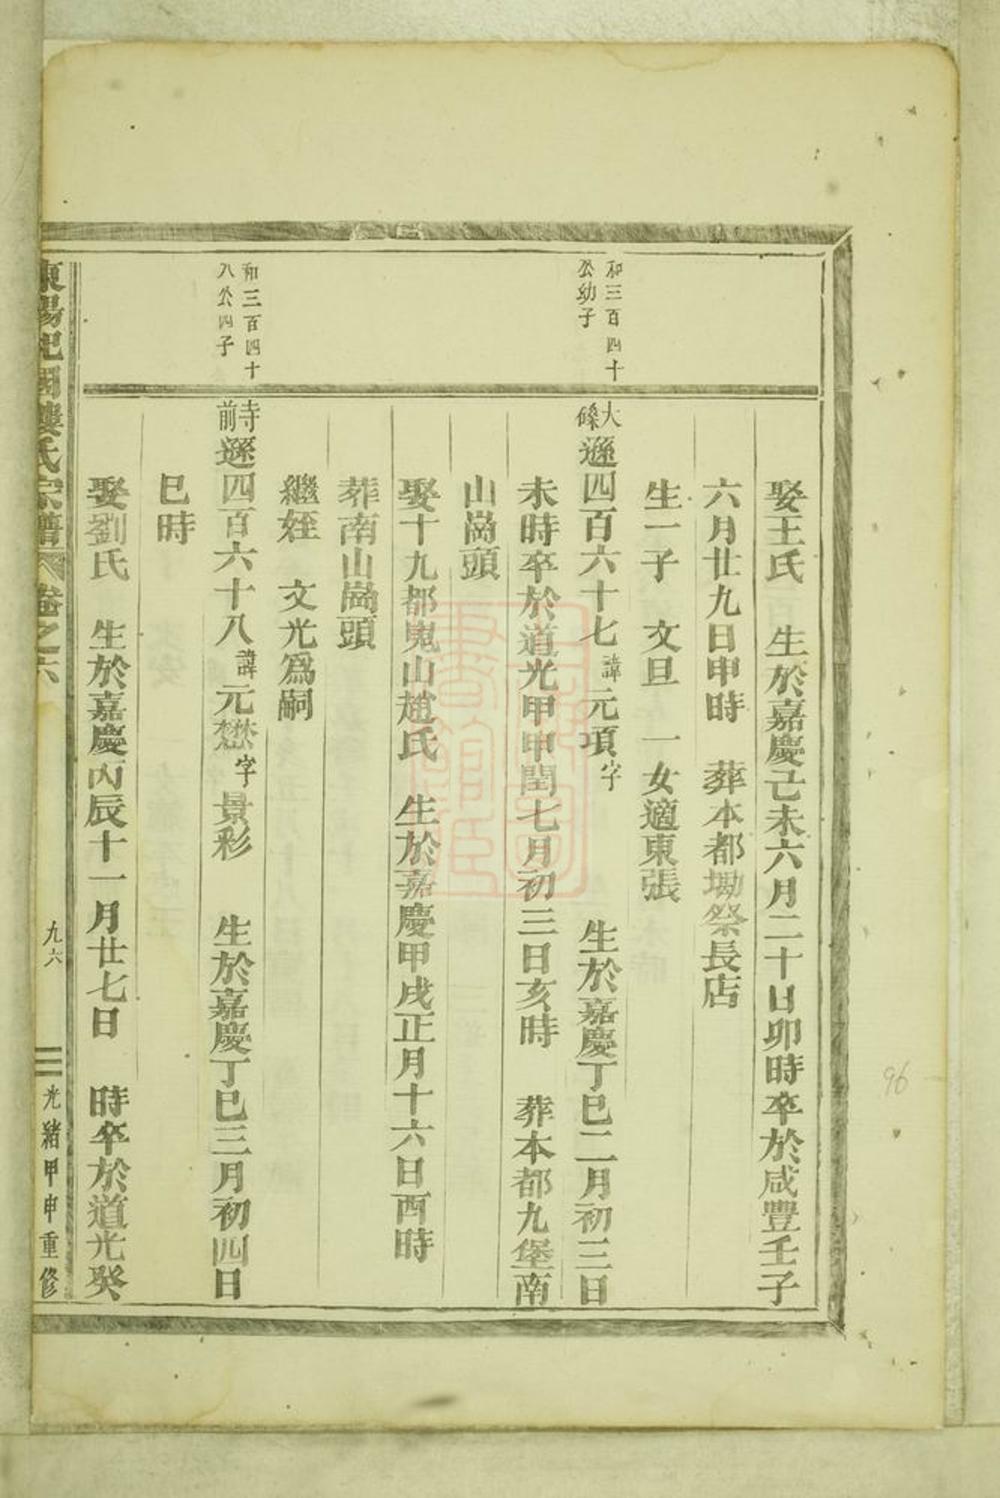 娶王氏　生於嘉慶己未六月二十日卯時卒於咸豐壬子
六月廿九日申時　葬本都坳祭長店
生一子　文旦　一女適東張
和三百四十
公幼子
大磉遜四百六十七諱元項字　　生於嘉慶丁巳二月初三日
未時卒於道光甲申閏七月初三日亥時　葬本都九堡南
山崗頭
娶十九都嵬山趙氏　生於嘉慶甲戌正月十六日酉時
葬南山崗頭
繼姪　文光爲嗣
和三百四十
八公四子
寺前遜四百六十八諱元懋字景彩　生於嘉慶丁巳三月初四日
巳時
娶劉氏　生於嘉慶丙辰十一月廿七日　時卒於道光癸
東陽杞國樓氏宗譜　卷之六　九六　光緒甲申重修
96